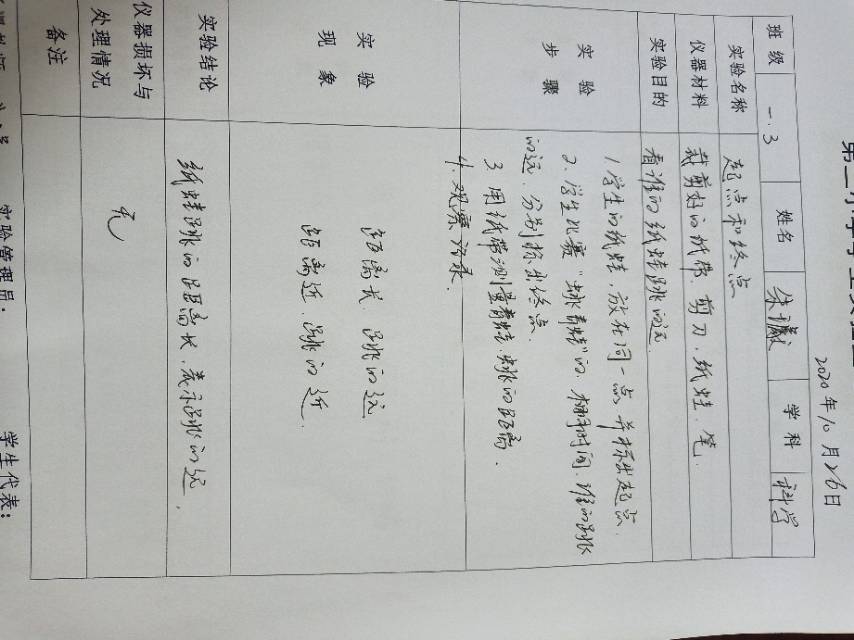 2020年10月26日
班级 一.3 姓名 学科 科学
实验名称 起点和终点
仪器材料 裁剪好的纸带、剪刀、纸蛙、笔
实验目的 看谁的纸蛙跳的远
实验步骤
1.学生的纸蛙，放在同一点并标出起点.
2.学生比赛"跳青蛙"的，相同时间，谁的跳
的远，分别标出终点.
3.用纸带测量青蛙跳的距离.
4.观察记录.
实验现象
距离长，跳的远
距离近，跳的近.
实验结论 纸蛙跳的距离长，表示跳的远.
仪器损坏与处理情况 无
备注
实验管理员：
学生代表：